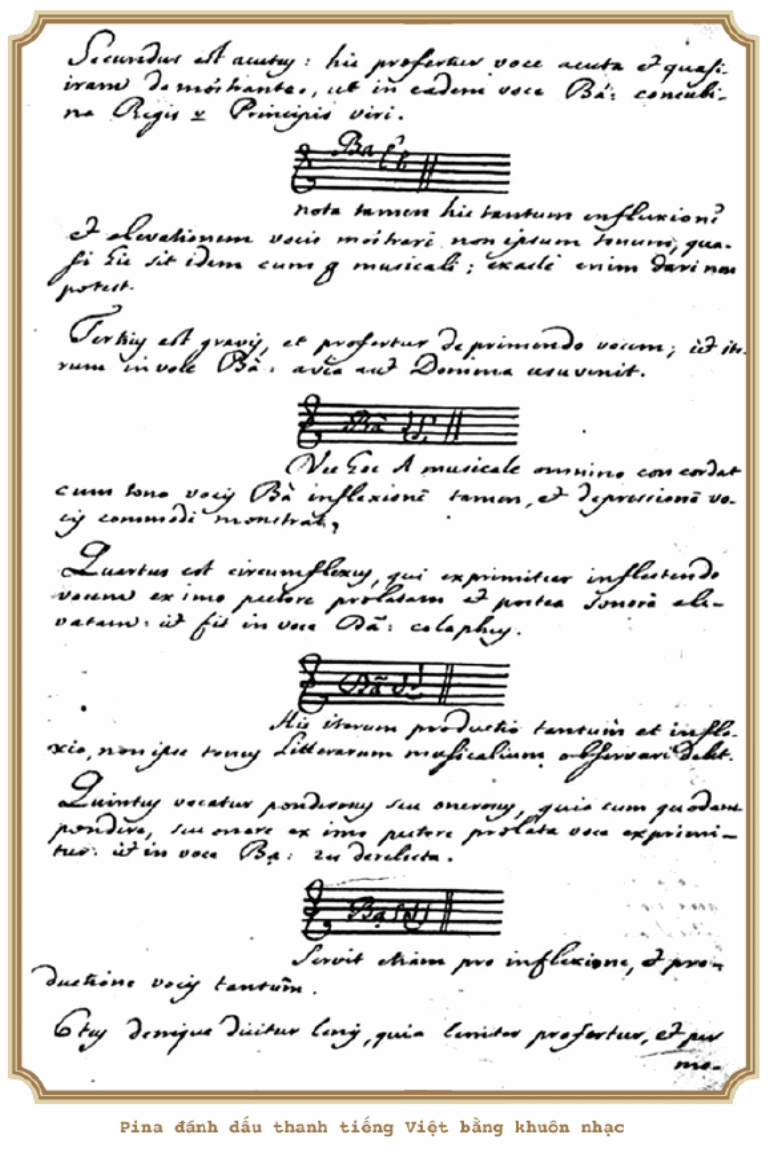 Secundus est acutus: hic profertur voce acuta et quasi-
iram demõstrante, ut in eadem voce Bá: concubi-
na Regis v Principis viri.
Ba
nota tamen hic tantum inflexionẽ
et elevationem vocis mõstrari non ipsum tonum, qua-
si hic sit idem cum musicali; exacte enim dari non
potest.
Tertius est gravis, et profertur deprimendo vocem; ut ite-
rum in voce Bà: avia aut Domina usu venit.
Bà
Nec hoc musicale omnino concordat
cum tono vocis Bà inflexionẽ tamen, et depressionẽ vo-
cis commodè monstrat,
Quartus est circumflexus, qui exprimitur inflectendo
vocem ex imo pectore prolatam et postea sonorã ele-
vatam: ut fit in voce Bã: colaphus.
Bã
Hic iterum productio tantum et infle-
xio, non ipse tonus litterarum musicalium observari debet.
Quintus vocatur ponderosus seu onerosus, quia cum quodam
pondere, seu onere ex imo pectore prolata voce exprimi-
tur: ut in voce Bạ: res derelicta.
Bạ
Servit etiam pro inflexione, et pro-
ductione vocis tantũm.
6tus denique dicitur lenis, quia leniter profertur, et per
mo-
Pina đánh dấu thanh tiếng Việt bằng khuôn nhạc